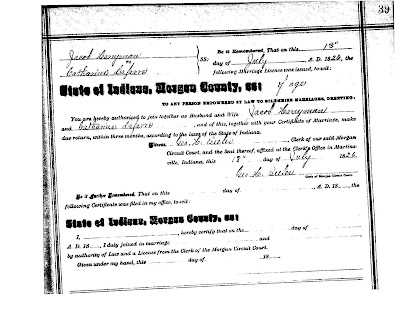 39
Be it Remembered, That on this 13"
Jacob Merryman
day of July A. D. 1826, the
to
SS:
Catharine Lafavre
following Marriage License was issued, to-wit:
State of Indiana, Morgan County, ss:
TO ANY PERSON EMPOWERED BY LAW TO SOLEMNIZE MARRIAGES, GREETING:
You are hereby authorized to join together as Husband and Wife Jacob Merryman
and Catharine Lafavre, and of this, together with your Certificate of Marriage, make
due return, within three months, according to the laws of the State of Indiana.
Witness, Geo. H., Clerk of our said Morgan
Circuit Court, and the Seal thereof, affixed at the Clerk's Office in Martins-
ville, Indiana, this 13" day of July 1826
Geo. H.
Clerk of Morgan Circuit Court.
Be it Further Remembered, That on this day of , A. D. 18 , the
following Certificate was filed in my office, to-wit:
State of Indiana, Morgan County, ss:
I, hereby certify that on the day of
A. D. 18 , I duly joined in marriage and
by authority of Law and a License from the Clerk of the Morgan Circuit Court.
Given under my hand, this day of 18